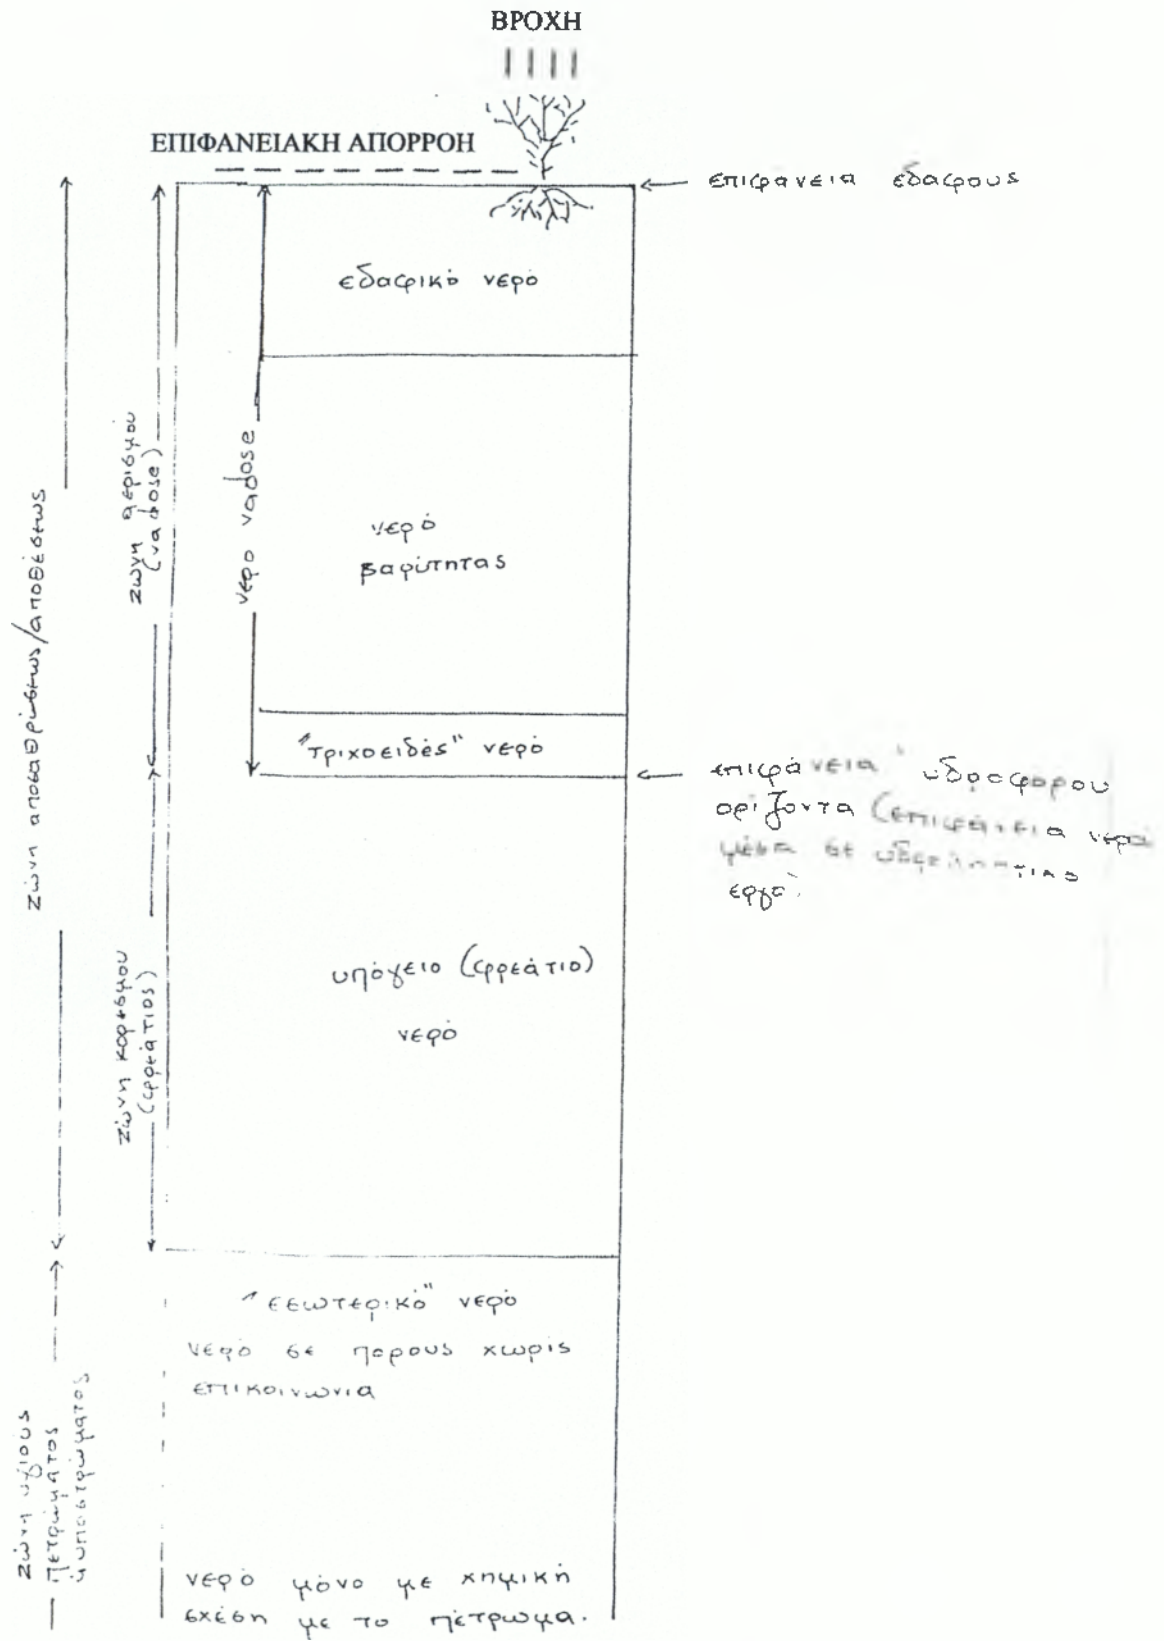 ΒΡΟΧΗ
ΕΠΙΦΑΝΕΙΑΚΗ ΑΠΟΡΡΟΗ
επιφανεια εδαφους
εδαφικό νερό
ζώνη αποσαθρώσεως/αποθέσεως
ζώνη αερισμού
(vadose)
νερο vadose
νερό
βαρύτητας
"τριχοειδές" νερό
επιφάνεια υδροφορου
ορίζοντα (επιφάνεια νερού
μέσα σε υδροληπτικο
εργο
υπόγειο (φρεάτιο)
νερό
ζώνη κορεσμού
(φρεάτιος)
"εσωτερικό" νερό
νερό σε πορους χωρίς
επικοινωνια
ζώνη υγιούς
πετρώματος
ή υποστρώματος
νερό μόνο με χημική
σχέση με το πέτρωμα.